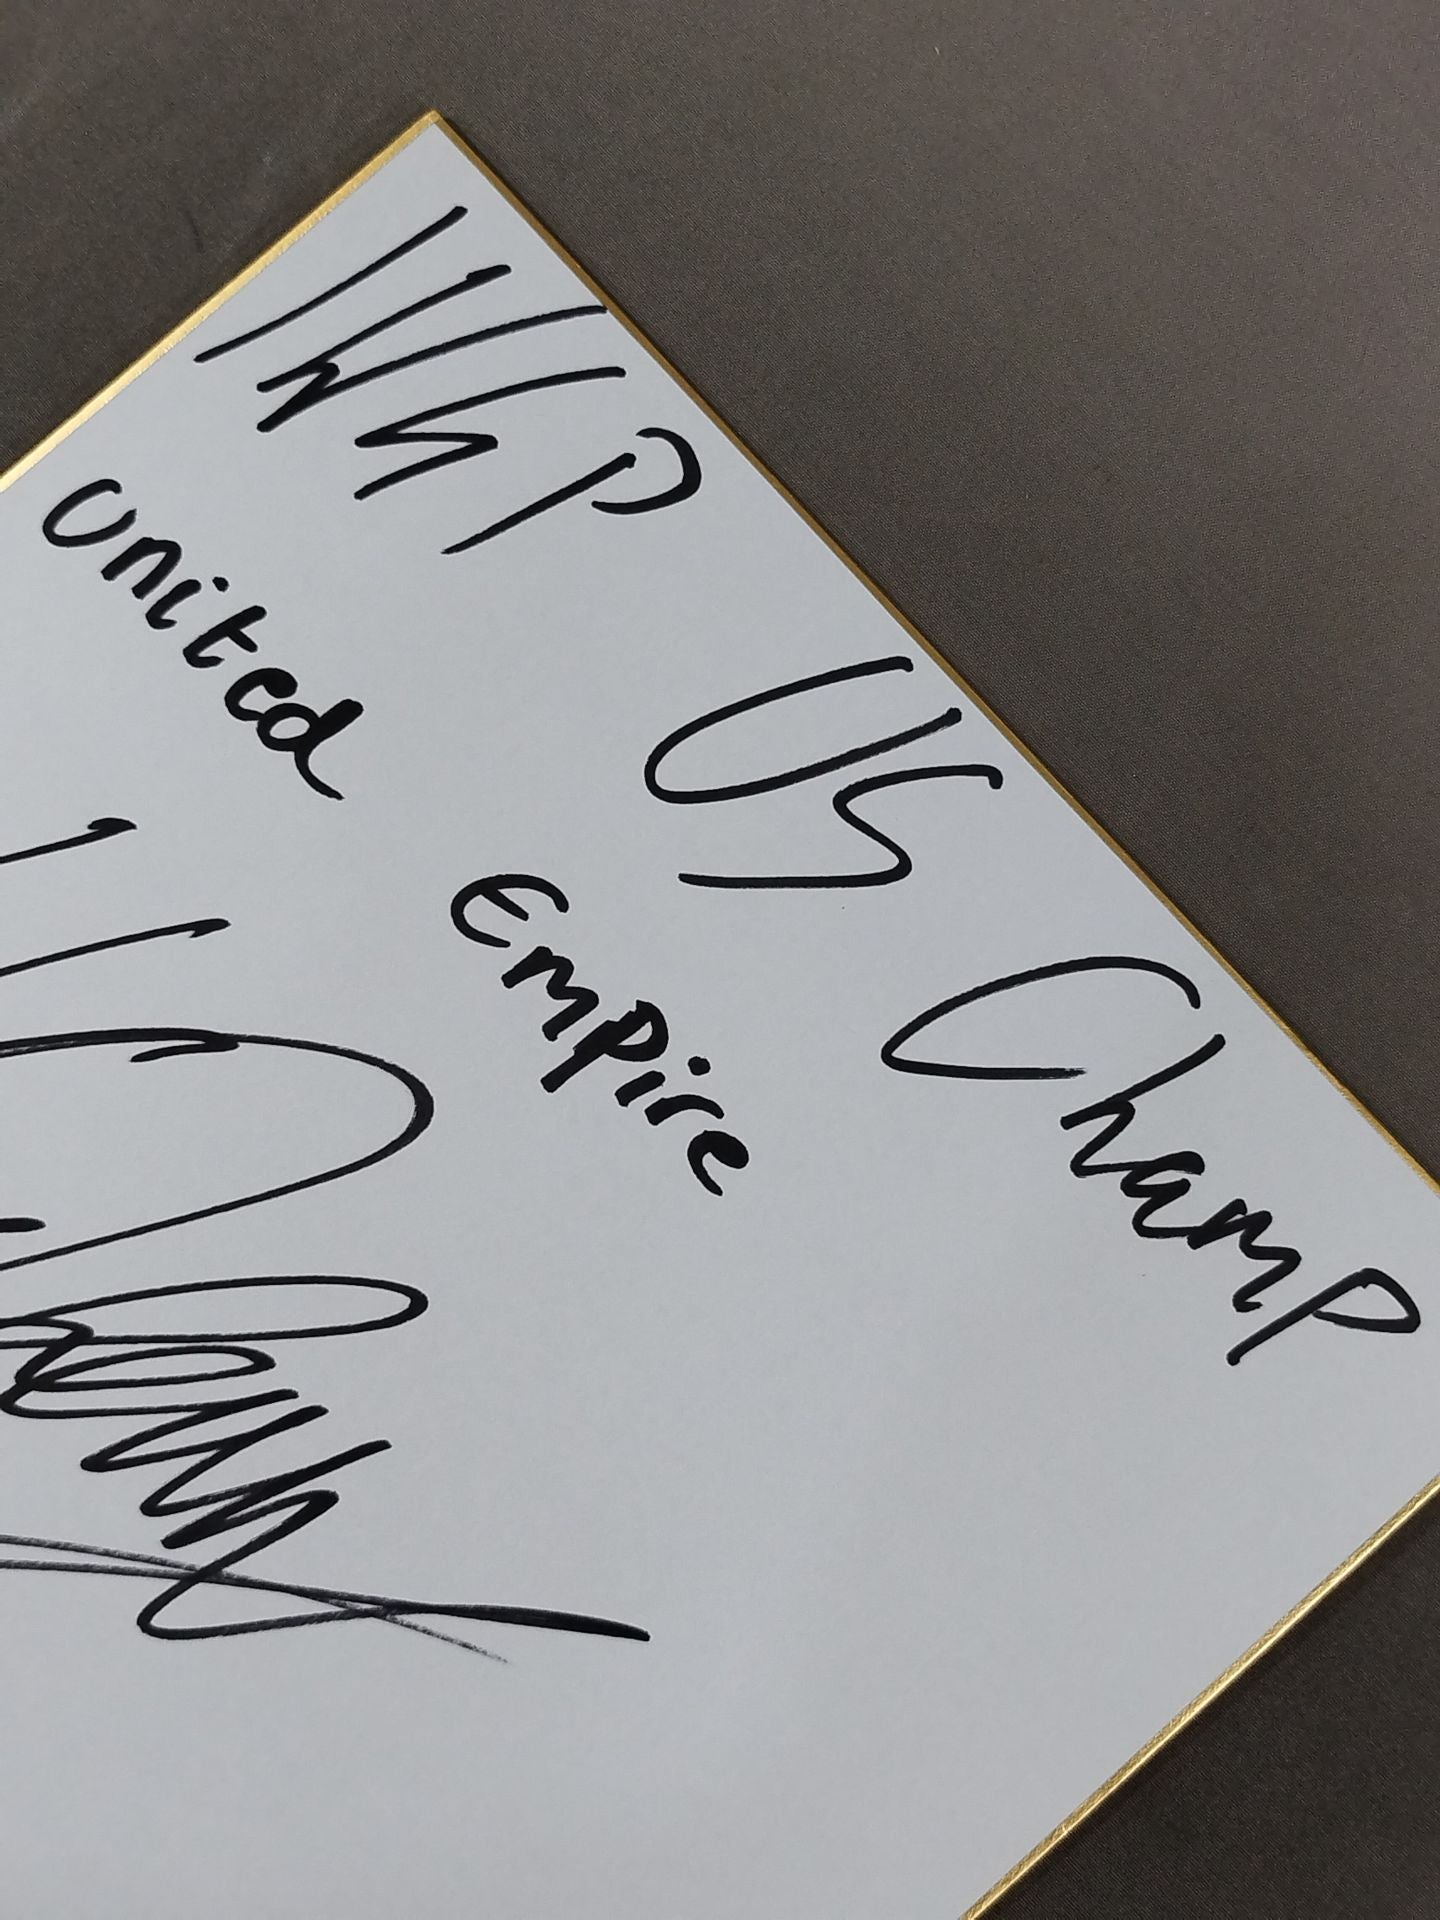 IWGP US Champ
United Empire